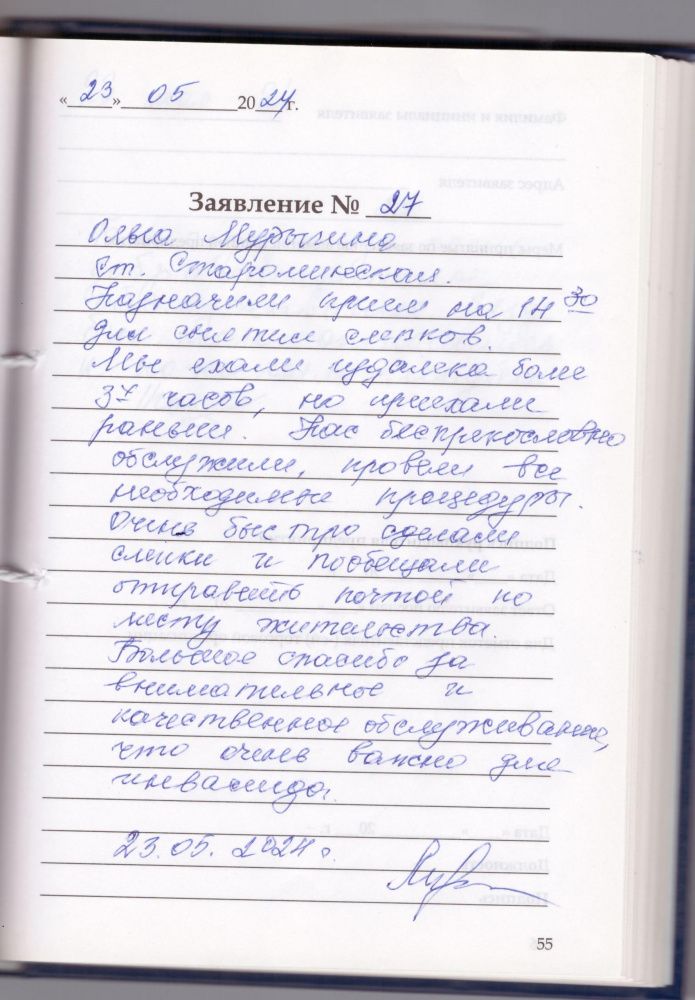 « 23 » 05 2024 г.
Заявление № 27
Ольга Мурыгина
ст. Староминская.
Назначили прием на 14 30
для снятия слепков.
Мы ехали издалека более
3х часов, но приехали
раньше. Нас беспрекословно
обслужили, провели все
необходимые процедуры.
Очень быстро сделали
слепки и пообещали
отправить почтой по
месту жительства
Большое спасибо за
внимательное и
качественное обслуживание,
что очень важно для
инвалида.
23.05.2024 г.
55